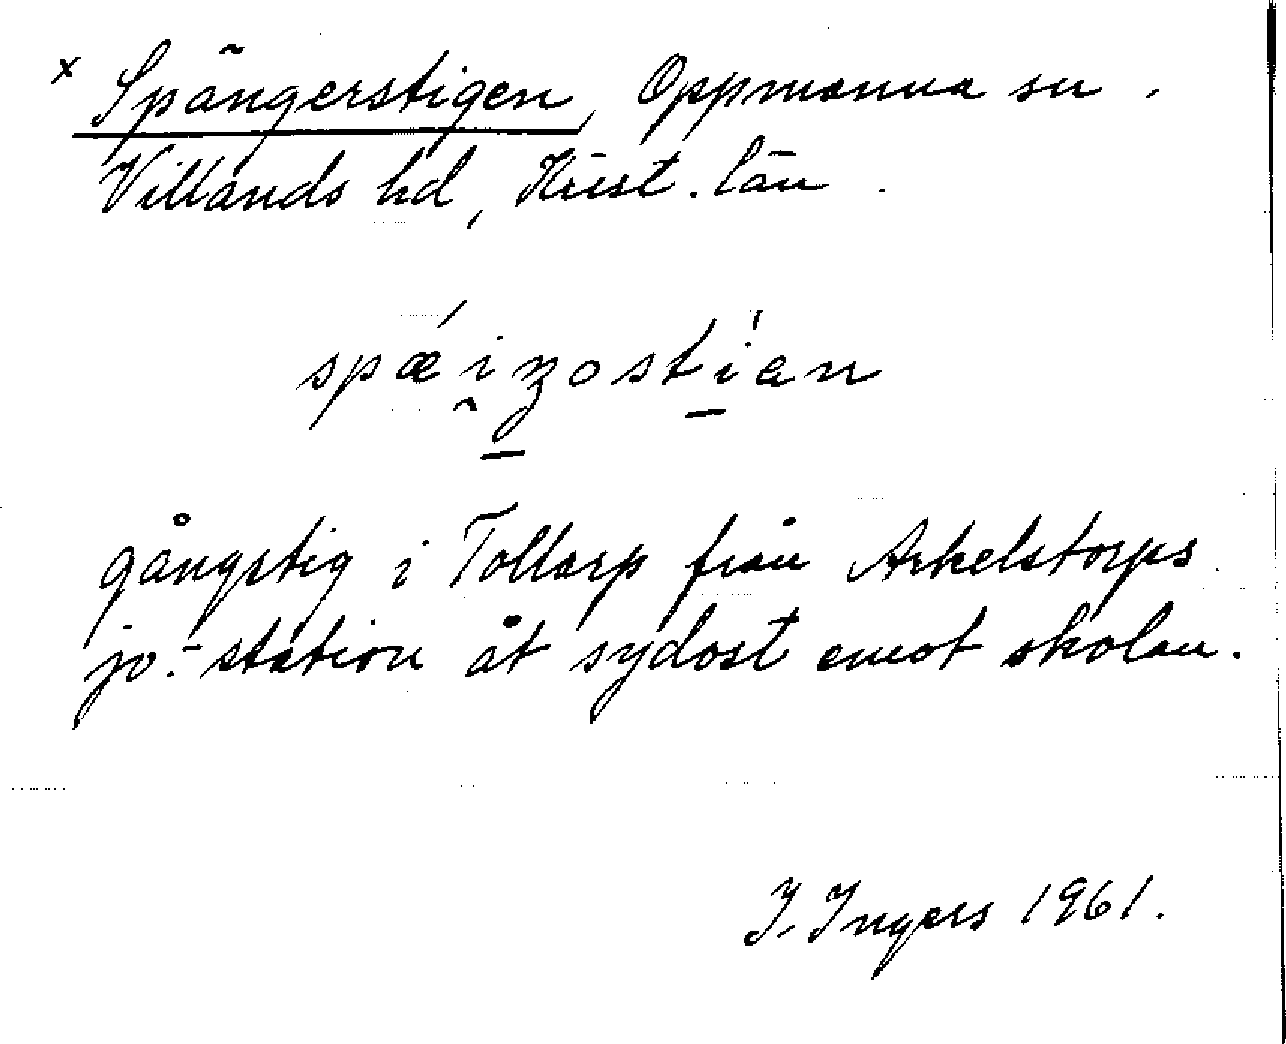 x Spångerstigen, Oppmanna sn.
Villands hd, Krist. län.
spæ´i̯ŋost¡ian
gångstig i Tollarp från Arkelstorps
jv.-station åt sydost emot skolan.
I. Ingers 1961.